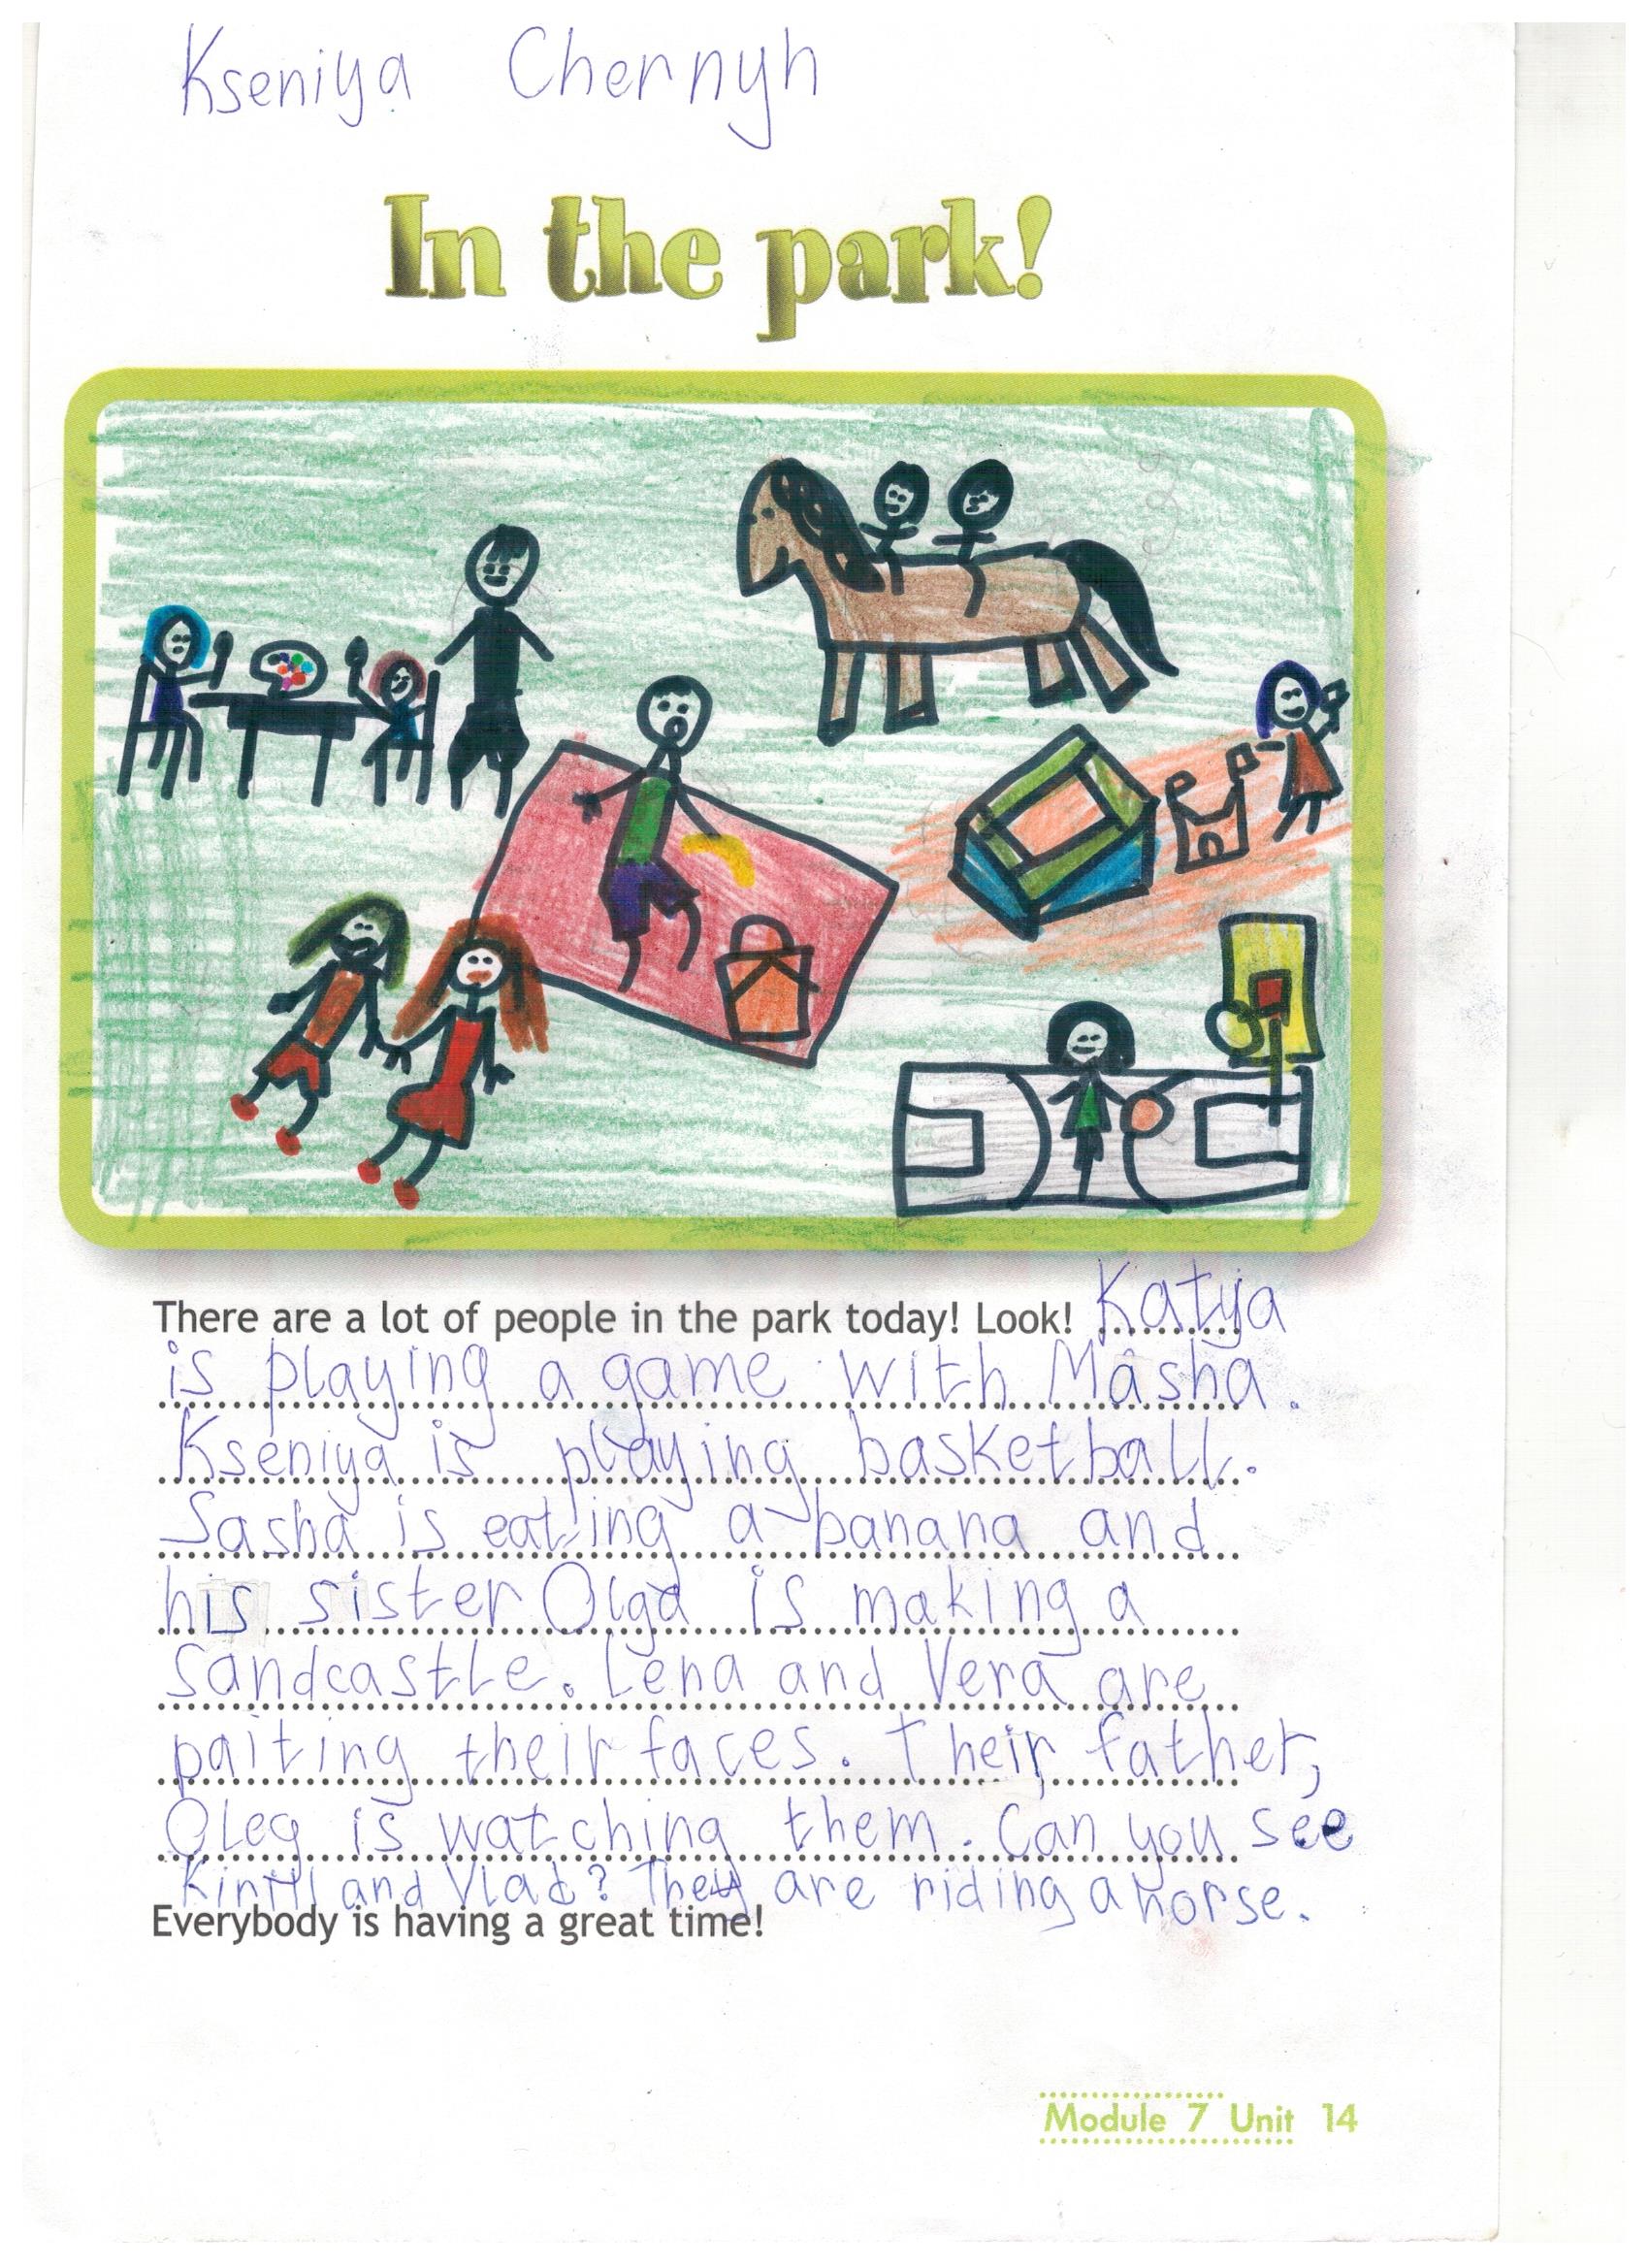 Kseniya Chernyh
In the park!
There are a lot of people in the park today! Look! Katya
is playing a game with Masha.
Kseniya is playing basketball.
Sasha is eating a banana and
his sister Olga is making a
sandcastle. Lena and Vera are
paiting their faces. Their father,
Oleg is watching them. Can you see
Kirill and Vlad? They are riding a horse.
Everybody is having a great time!
Module 7 Unit 14